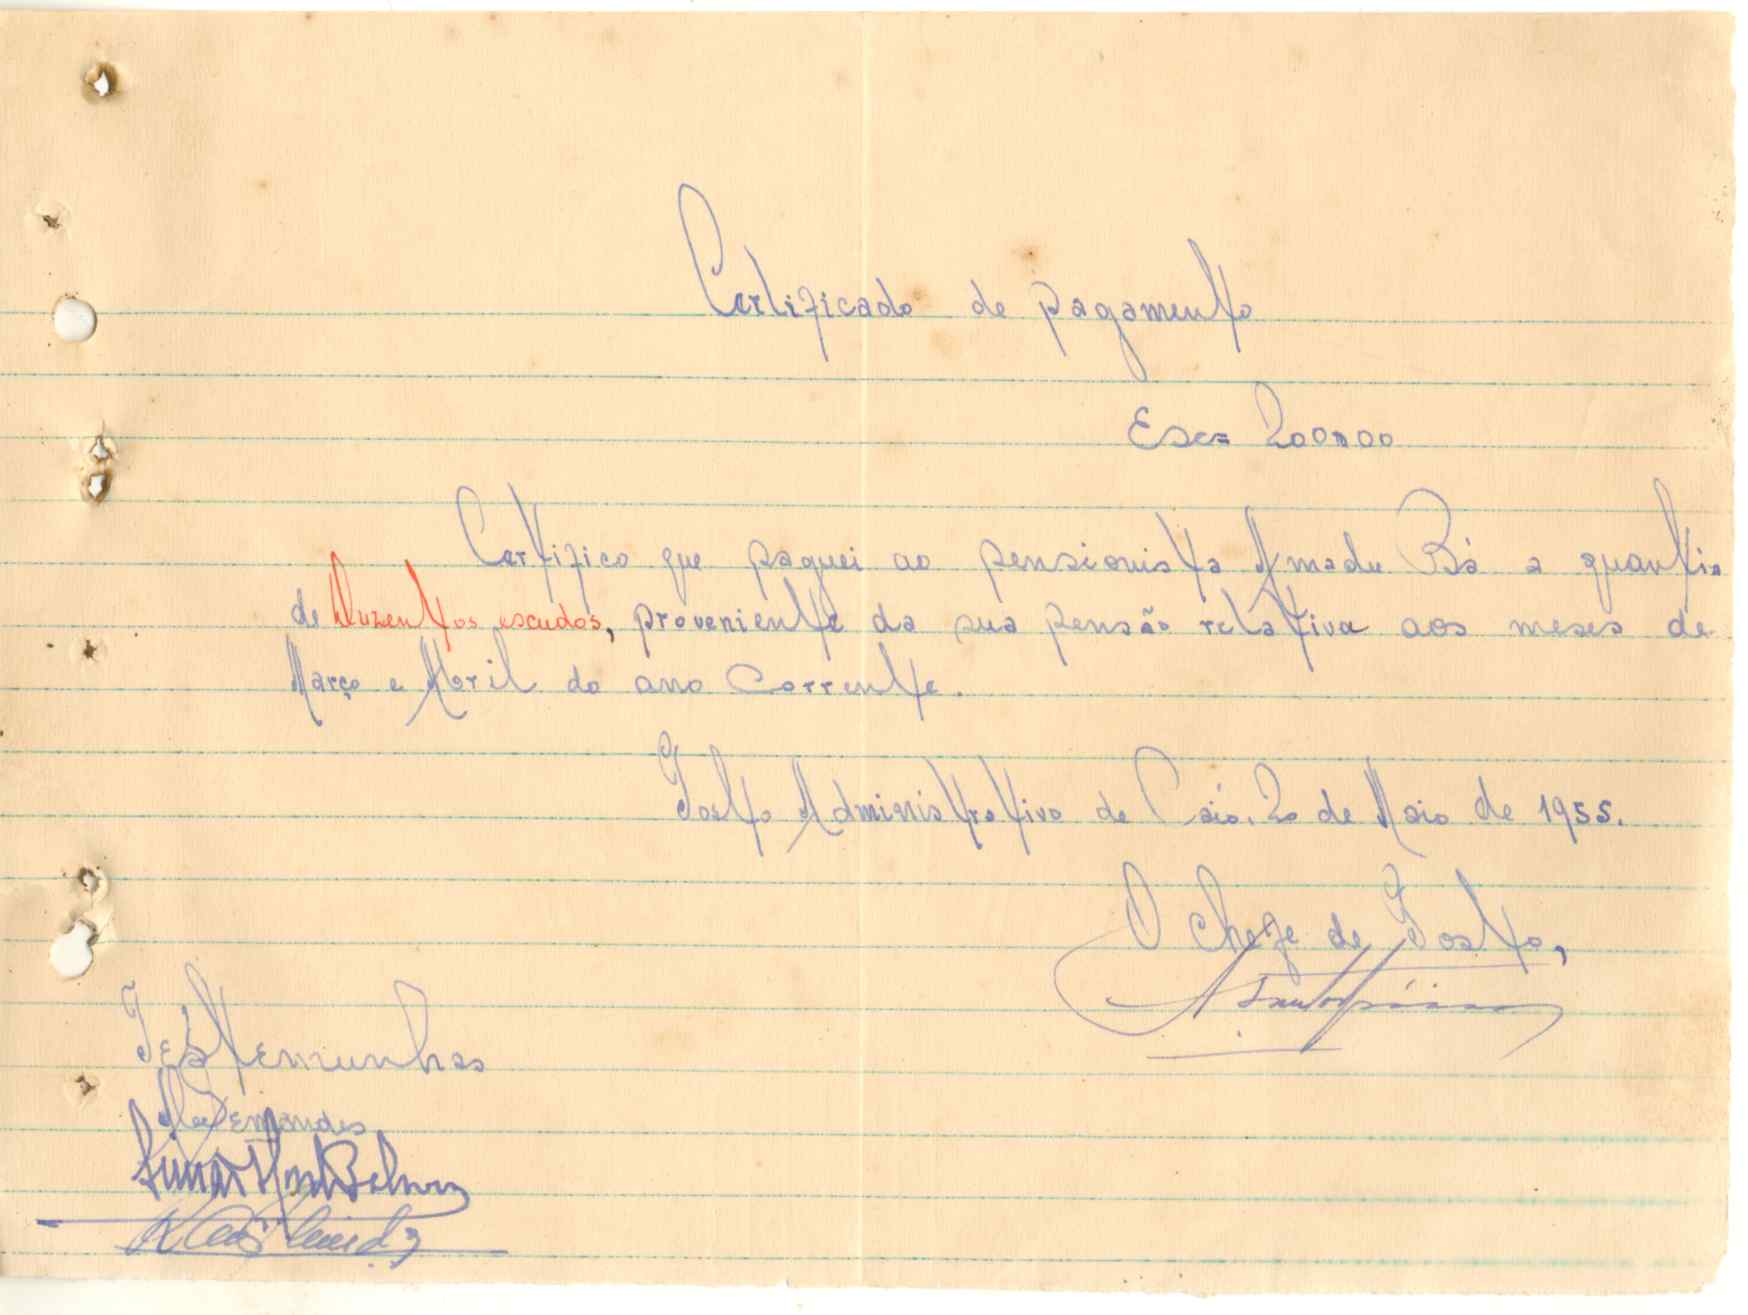 Certificado de pagamento
Esc= 200$00
Certifico que paguei ao pensionista Amadu Bá a quantia
de Duzentos escudos, proveniente da sua pensão relativa aos meses de
Março e Abril do ano corrente.
Posto Administrativo de Caió. 20 de Maio de 1955.
O chefe de Posto,
Testemunhas